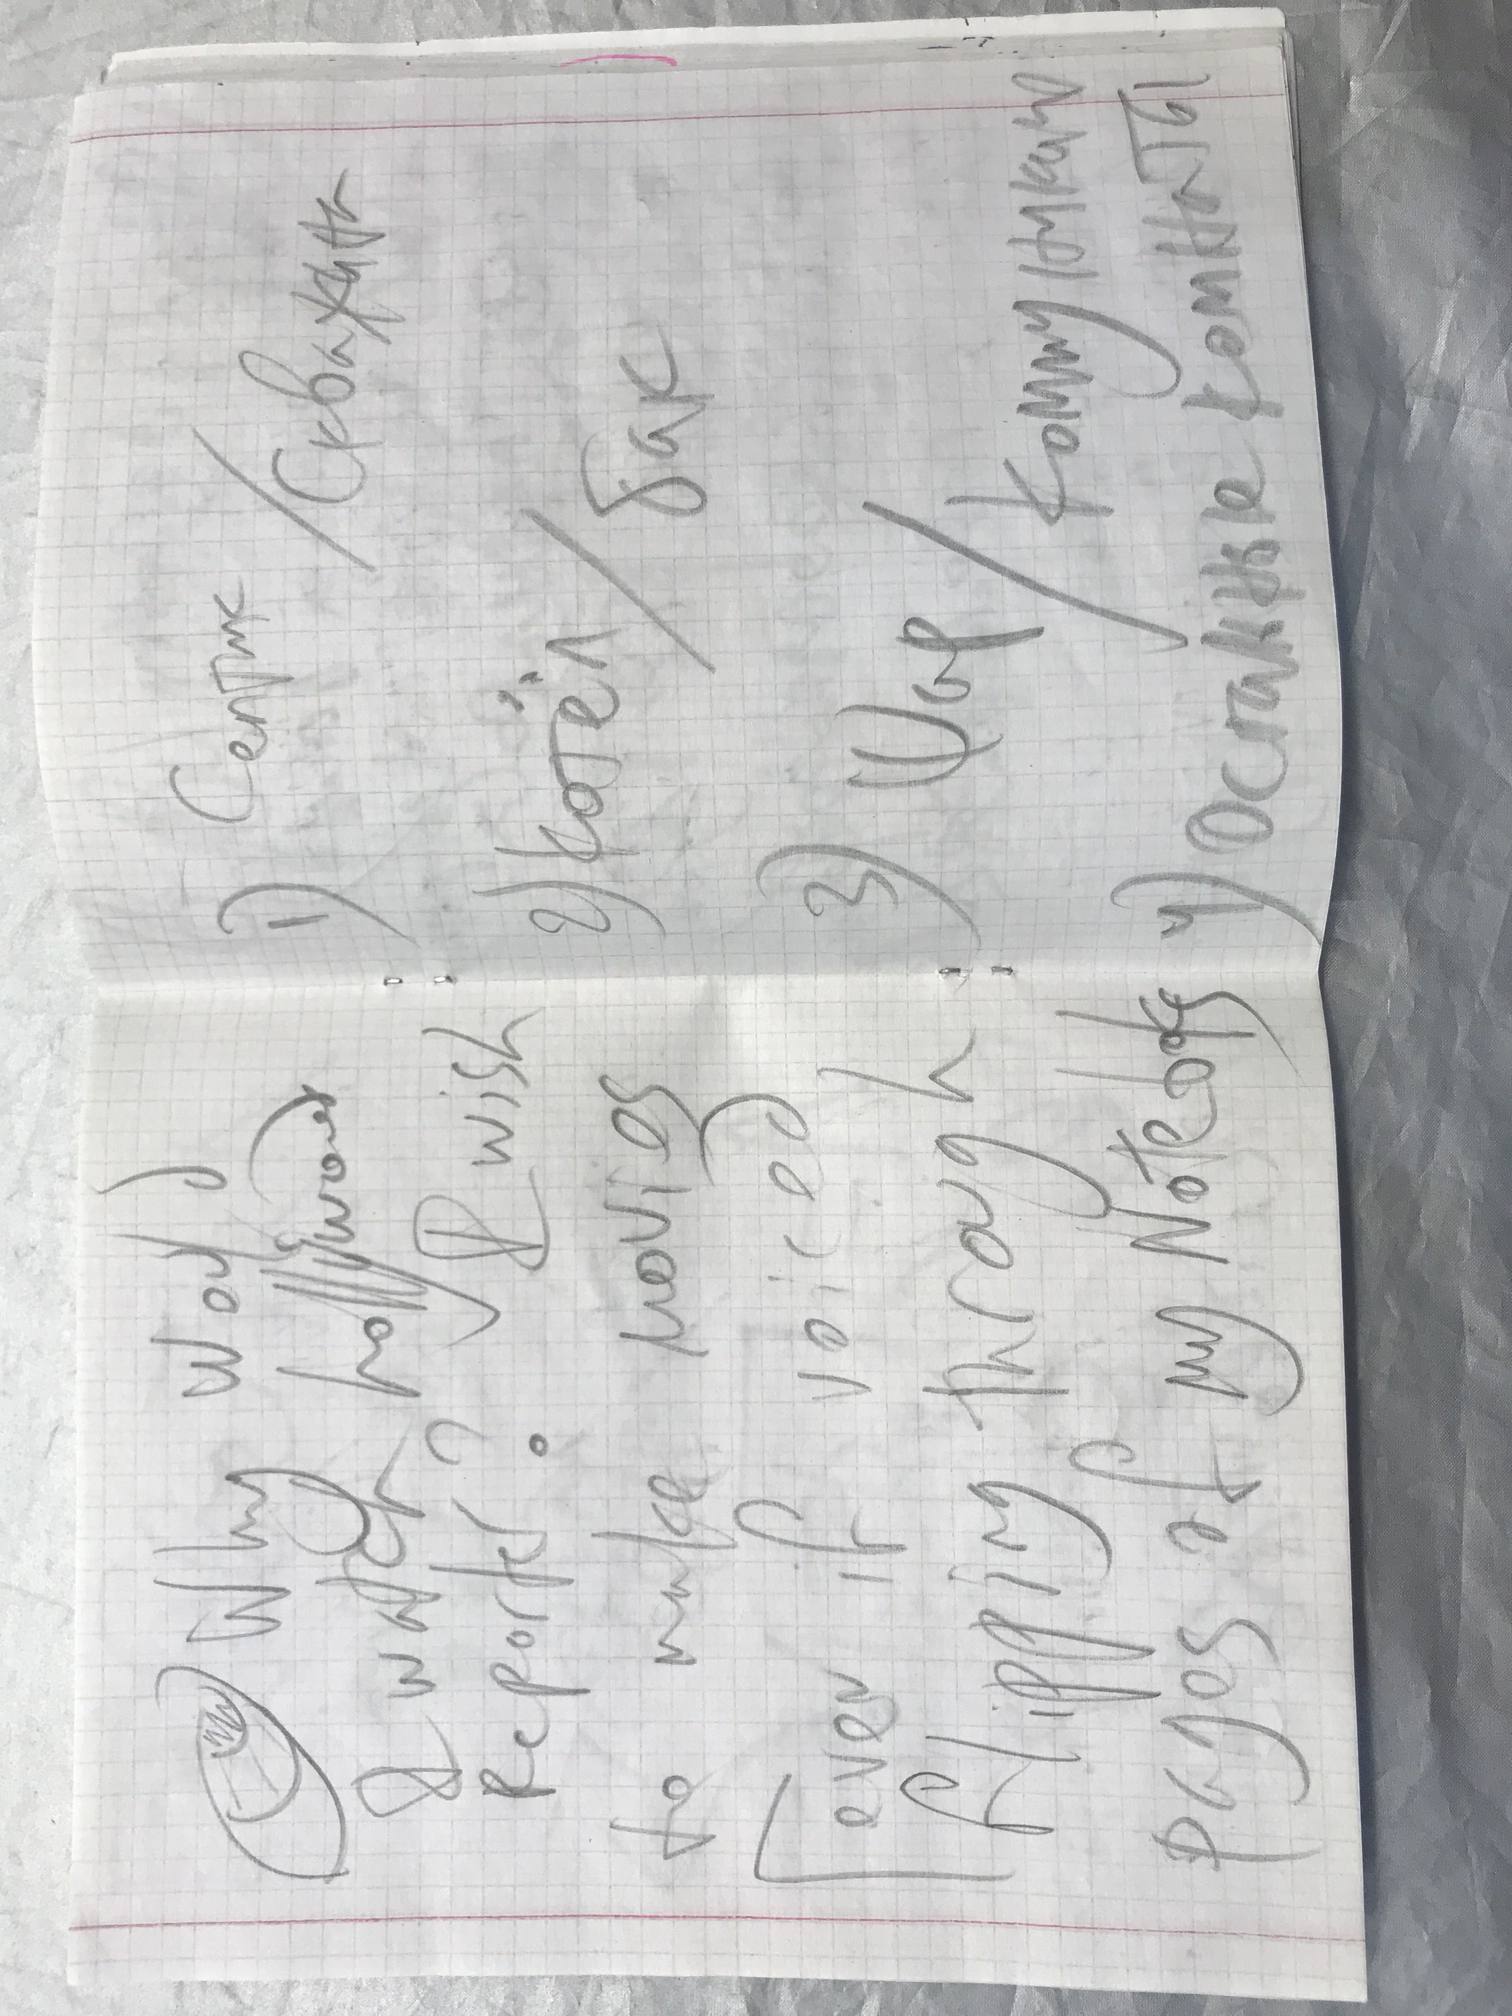 Why woud
I watch hollywood
Reporter? I wish
to make movies
even if voiced
flipping throug h
pages of my Notebok
1) Септик
/ Скважина
2) Котёл
/ бак
3) Цоф
/ Коммуникаю
4) Остальные комнаты